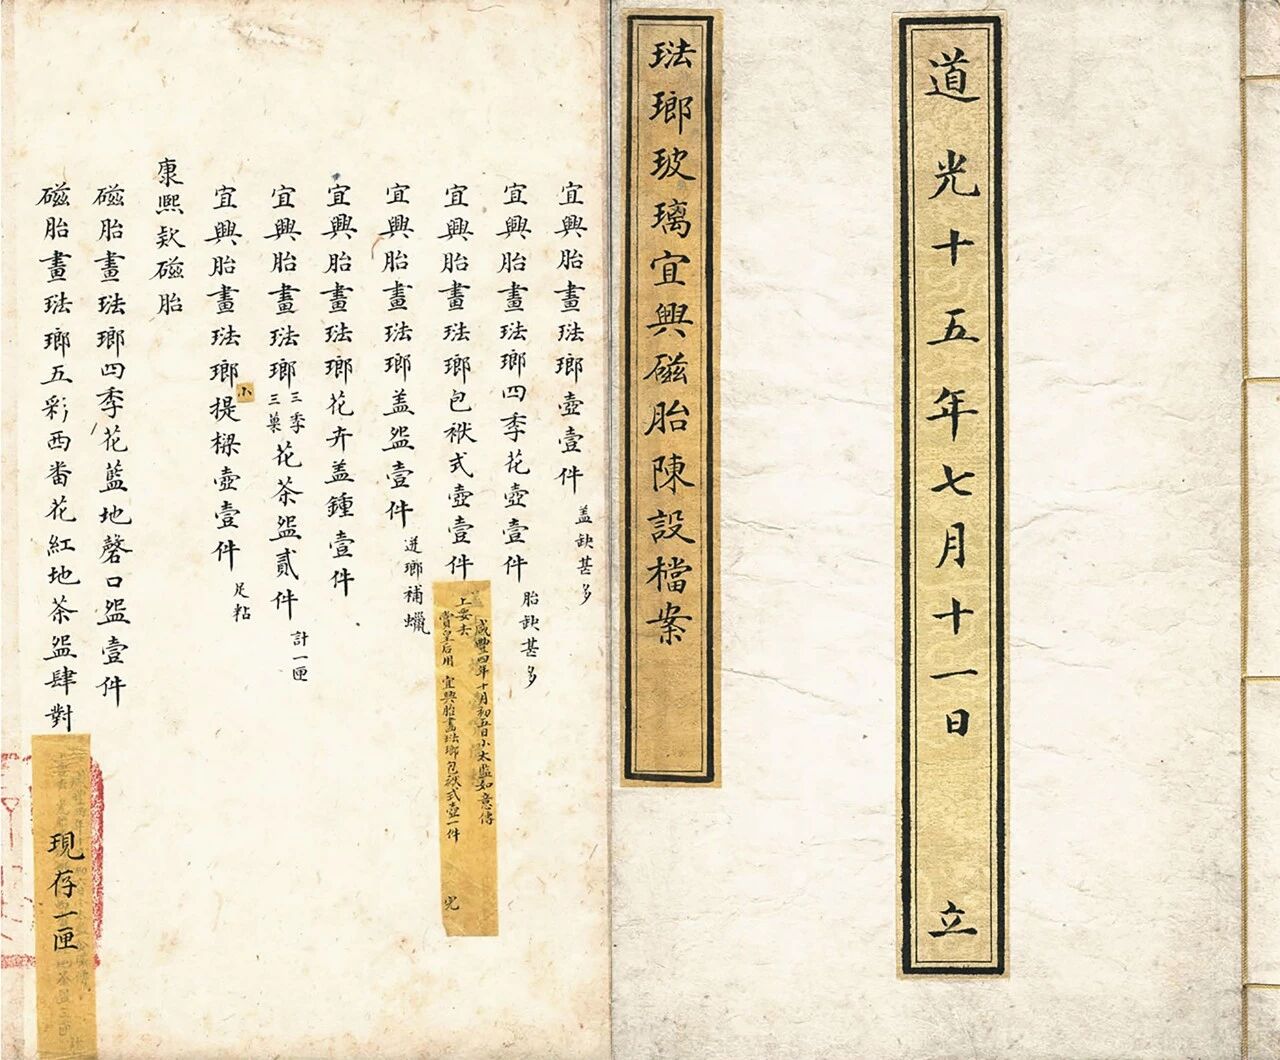 道光十五年七月十一日 立
琺瑯玻璃宜興磁胎陳設檔案
宜興胎畫琺瑯壺壹件 盖缺甚多
宜興胎畫琺瑯四季花壺壹件 胎缺甚多
宜興胎畫琺瑯包袱式壺壹件
咸豐四年十月初五日小太監如意傳
上要去
賞皇后用 宜興胎畫琺瑯包袱式壺一件
宜興胎畫琺瑯盖盌壹件 迸瑯補蠟
宜興胎畫琺瑯花卉盖鍾壹件
宜興胎畫琺瑯三季三菓花茶盌貳件 計一匣
宜興胎畫琺瑯小提樑壺壹件 足粘
康熙款磁胎
磁胎畫琺瑯四季花藍地磬口盌壹件
磁胎畫琺瑯五彩西番花紅地茶盌肆對
現存一匣